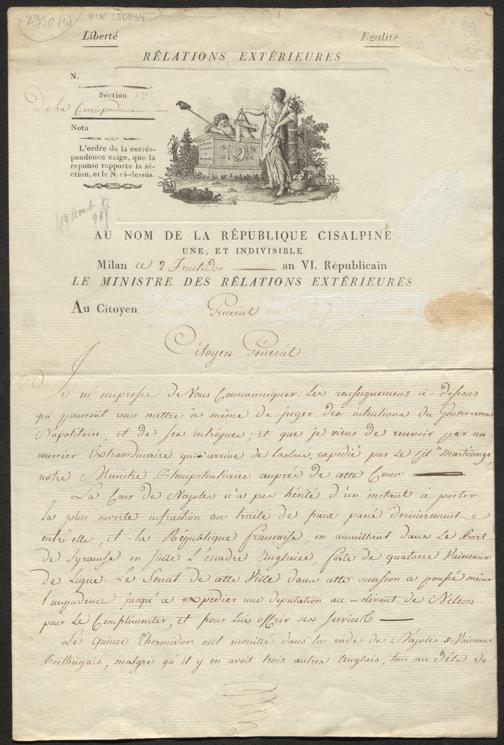 Liberté Egalité
RÉLATIONS EXTÉRIEURES
N.
Séction
De la Correspondance
Nota
L'ordre de la corrés-
pondence exige, que la
reponse rapporte la sé-
ction, et le N. ci-dessus.
AU NOM DE LA RÉPUBLIQUE CISALPINE
UNE, ET INDIVISIBLE
Milan ce 2 Fructidor an VI. Républicain
LE MINISTRE DES RÉLATIONS EXTÉRIEURES
Au Citoyen Général
Citoyen Général
Je m'empresse de Vous Communiquer Les renseignements ci-dessous
qui pourront vous mettre à même de juger des intentions du Gouvernement
Napolitain, et de ses intrigues; et que je viens de recevoir par un
courrier Extraordinaire qui arrive de expedié pas le Cit.n Martinengo,
notre Ministre Plenipotentiaire auprès de cette Cour
La Cour de Naples n'a pas hesité d'un instant à porter
la plus ouverte infraction au traité de paix passé dernierement
entre elle, et la République française, en admettant dans Le Port
de Syracuse en Sicile L'escadre Anglaise, forte de quatorze Vaisseaux
de Ligne. Le Senat de cette Ville dans cette occasion a poussé même
l'impudence jusqu'à expedier une deputation au-devant de Nelson
pour Le Complimenter, et pour Lui offrir ses services
Le Quinze Thermidor ont mouillé dans la rade de Naples Vaisseaux
Portugais, malgré qu'il y en avoit trois autres Anglais, tous au delà de